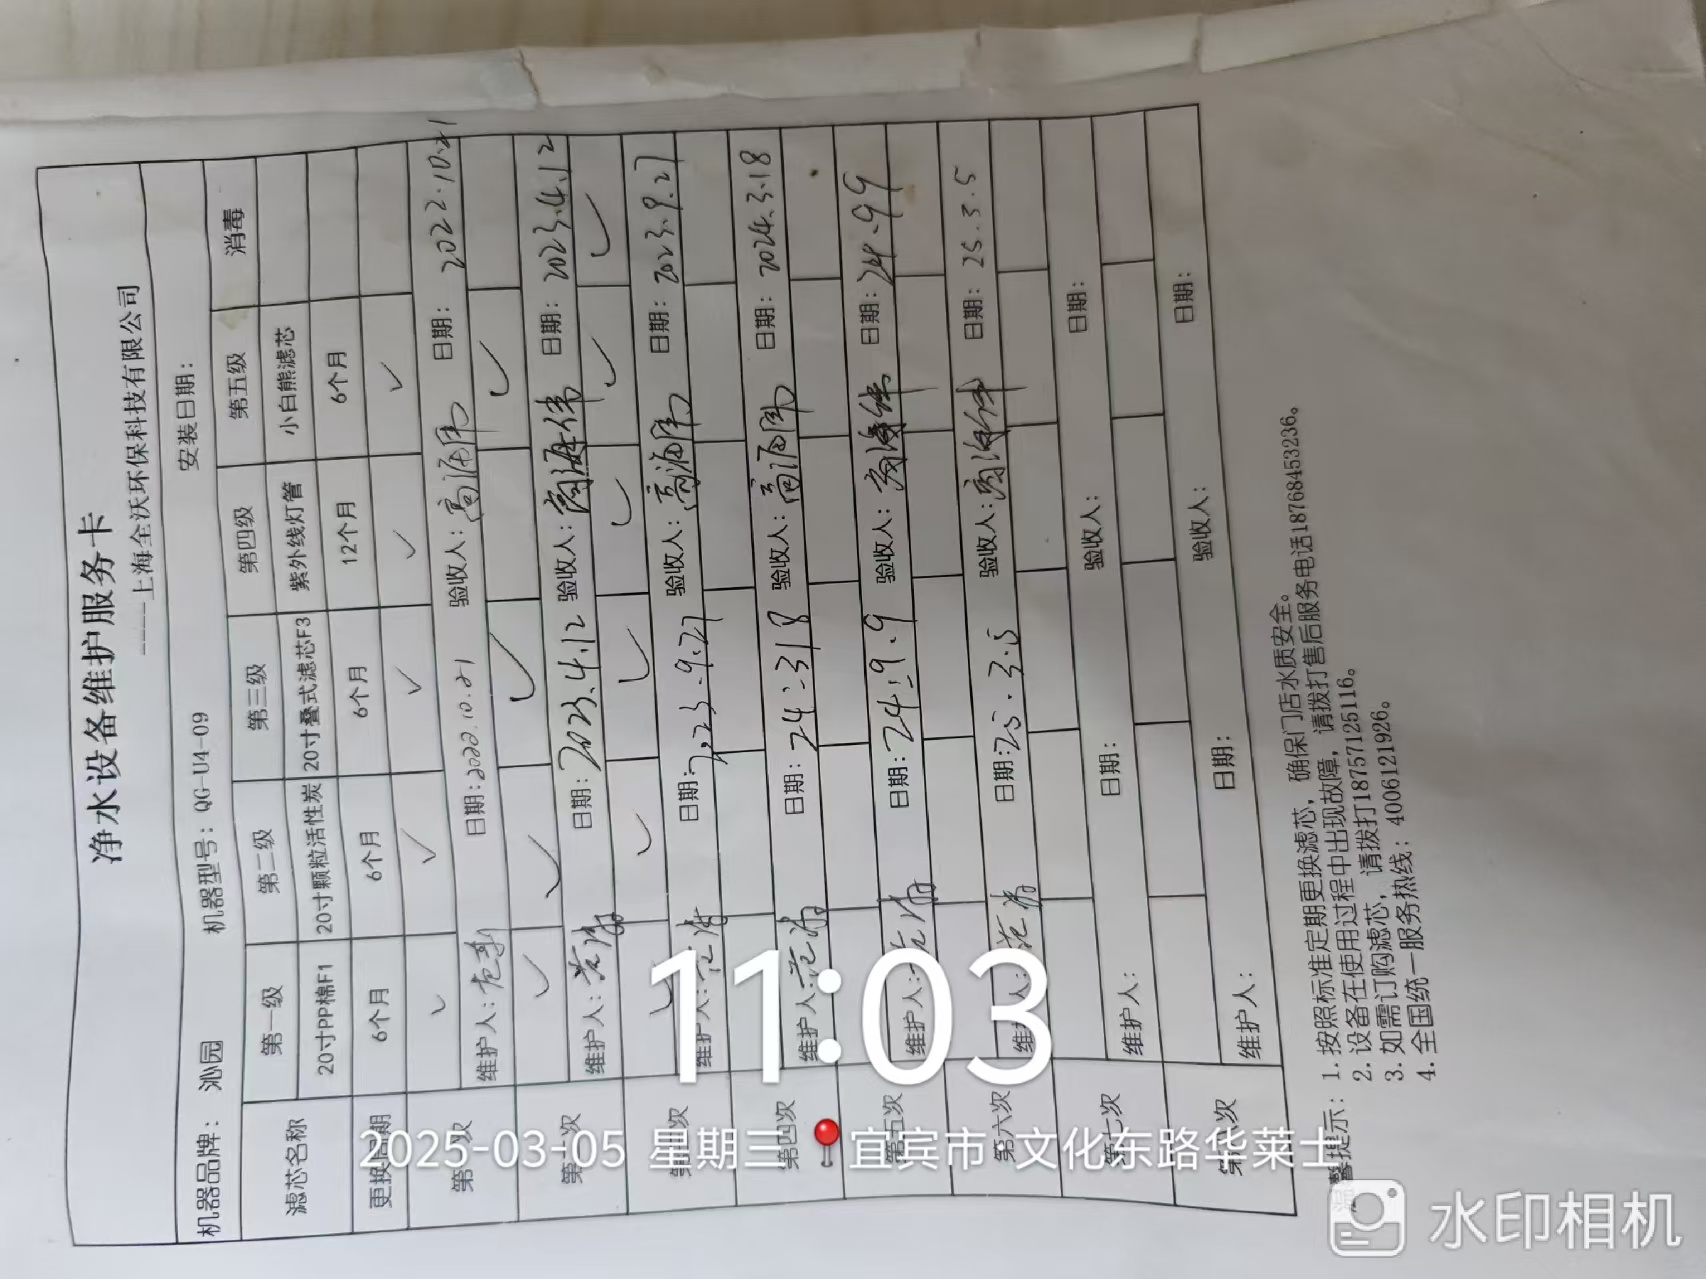 净水设备维护服务卡
----上海全沃环保科技有限公司
机器品牌： 沁园 机器型号：QG-U4-09 安装日期：
滤芯名称 第一级 第二级 第三级 第四级 第五级 消毒
20寸PP棉F1 20寸颗粒活性炭 20寸叠式滤芯F3 紫外线灯管 小白熊滤芯
更换周期 6个月 6个月 6个月 12个月 6个月
第一次 ✓ ✓ ✓ ✓ ✓
维护人： 日期：2022.10.21 验收人：高海伟 日期：2022.10.21
第二次 ✓ ✓ ✓ ✓
维护人：范海 日期：2023.4.12 验收人：高海伟 日期：2023.4.12
第三次 ✓ ✓ ✓ ✓ ✓ ✓
维护人：范海 日期：2023.9.27 验收人：高海伟 日期：2023.9.27
第四次
维护人：范海 日期：24.3.18 验收人：高海伟 日期：2024.3.18
第五次
维护人：范海 日期：24.9.9 验收人：高海伟 日期：24.9.9
第六次
维护人：范海 日期：25.3.5 验收人：高海伟 日期：25.3.5
第七次
维护人： 日期： 验收人： 日期：
第八次
维护人： 日期： 验收人： 日期：
温馨提示：1.按照标准定期更换滤芯，确保门店水质安全。
2.设备在使用过程中出现故障，请拨打售后服务电话18768453236。
3.如需订购滤芯，请拨打18757125116。
4.全国统一服务热线：4006121926。
11:03
2025-03-05 星期三 宜宾市·文化东路华莱士
水印相机